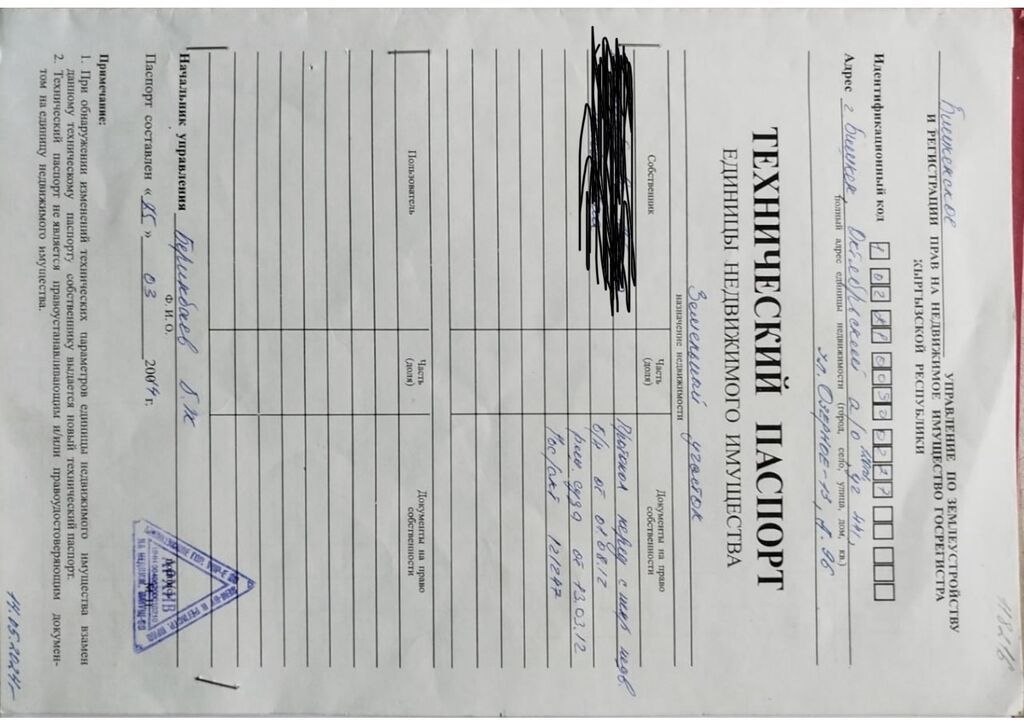 118218
Бишкекское УПРАВЛЕНИЕ ПО ЗЕМЛЕУСТРОЙСТВУ
И РЕГИСТРАЦИИ ПРАВ НА НЕДВИЖИМОЕ ИМУЩЕСТВО ГОСРЕГИСТРА
КЫРГЫЗСКОЙ РЕСПУБЛИКИ
Идентификационный код
Адрес г. Бишкек, Октябрьский а/о
полный адрес единицы недвижимости (город, село, улица, дом, кв.)
ул. Озерное-13, д. 96
ТЕХНИЧЕСКИЙ ПАСПОРТ
ЕДИНИЦЫ НЕДВИЖИМОГО ИМУЩЕСТВА
Земельный участок
назначение недвижимости
Собственник Часть (доля) Документы на право собственности
Протокол перед с
б/н от 01.08.12
реш. суда от 13.03.12
Гос/акт 121247
Пользователь Часть (доля) Документы на право собственности
Начальник управления
Ф. И. О.
Паспорт составлен « 15 » 03 2004 г.
АРХИВ
Примечание:
1. При обнаружении изменений технических параметров единицы недвижимого имущества взамен
данному техническому паспорту собственнику выдается новый технический паспорт.
2. Технический паспорт не является правоустанавливающим и/или правоудостоверяющим докумен-
том на единицу недвижимого имущества.
14.05.2024г